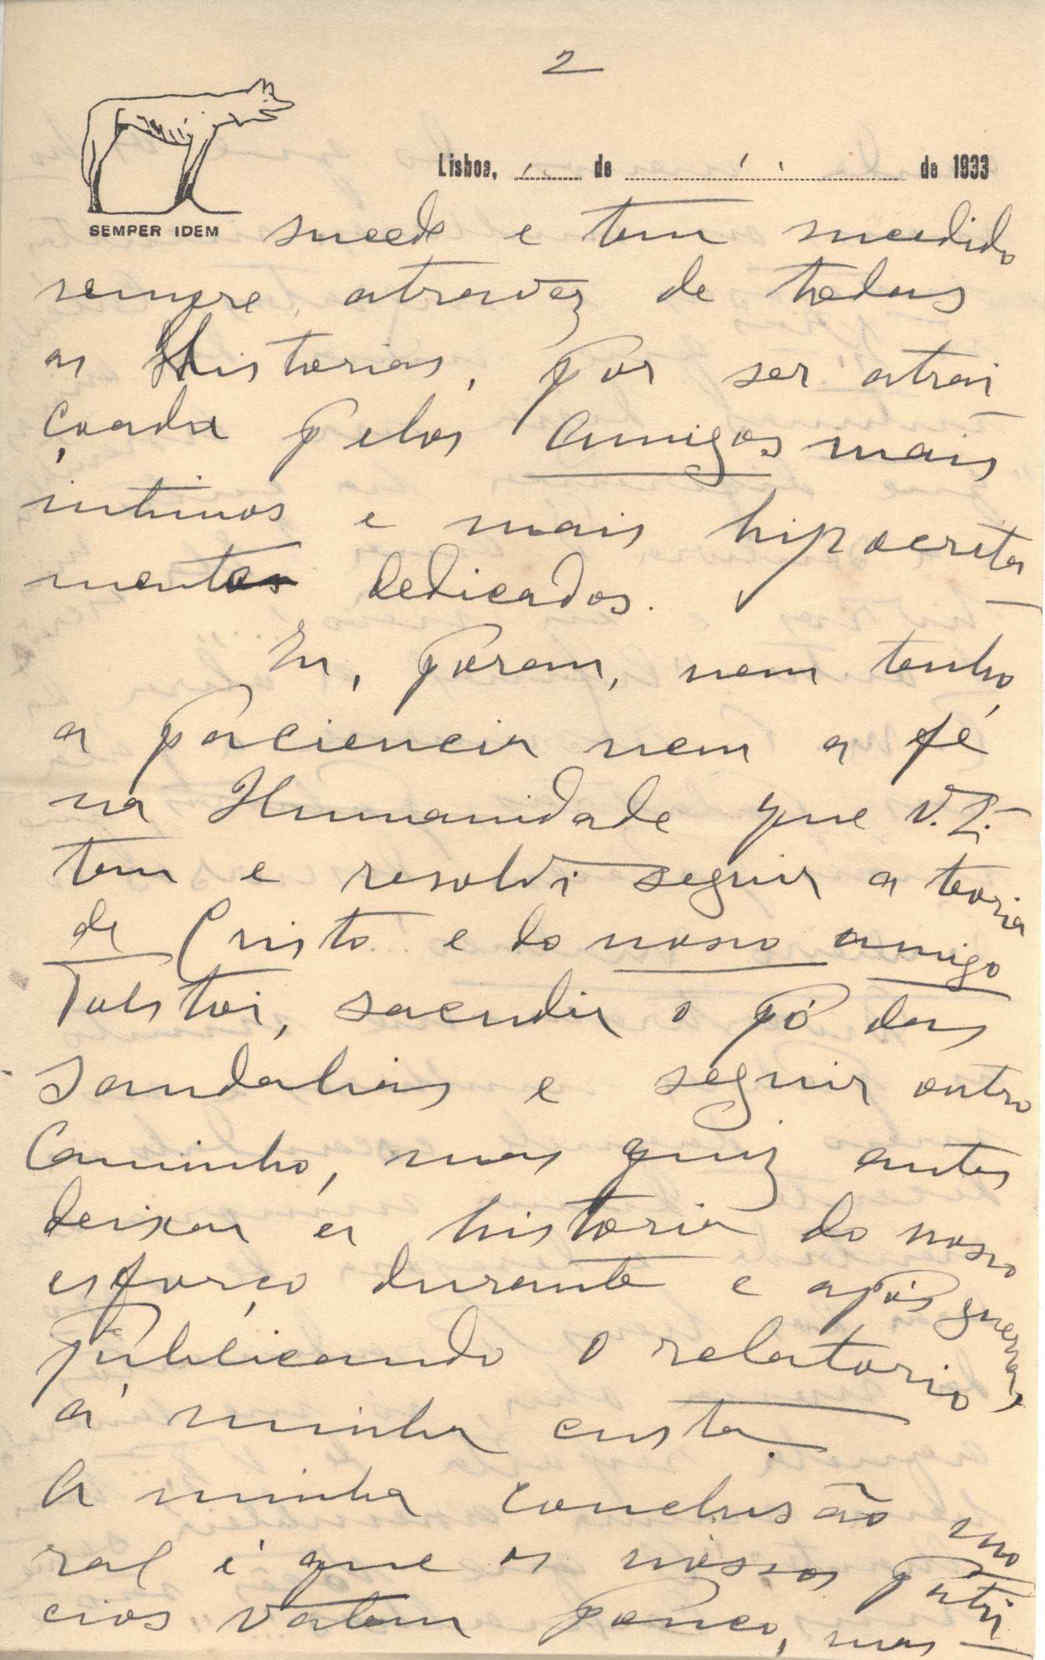 2
Lisboa, de de 1933
SEMPER IDEM
sucede e tem sucedido
sempre, atravez de todas
as Historias, por ser atrai
çoada pelos amigos mais
intimos e mais hipocrita
mente dedicados.
Eu, porem, nem tenho
a paciencia nem a fé
na Humanidade que V. E.
tem e resolvi seguir a teoria
de Cristo e do nosso amigo
Tolstoi, sacudir o pó das
sandalias e seguir outro
Caminho, mas quiz antes
deixar a historia do nosso
esforço durante e após guerra,
publicando o relatorio
á minha custa.
A minha conclusão mo
ral é que os nossos patri
cios valem pouco, mas